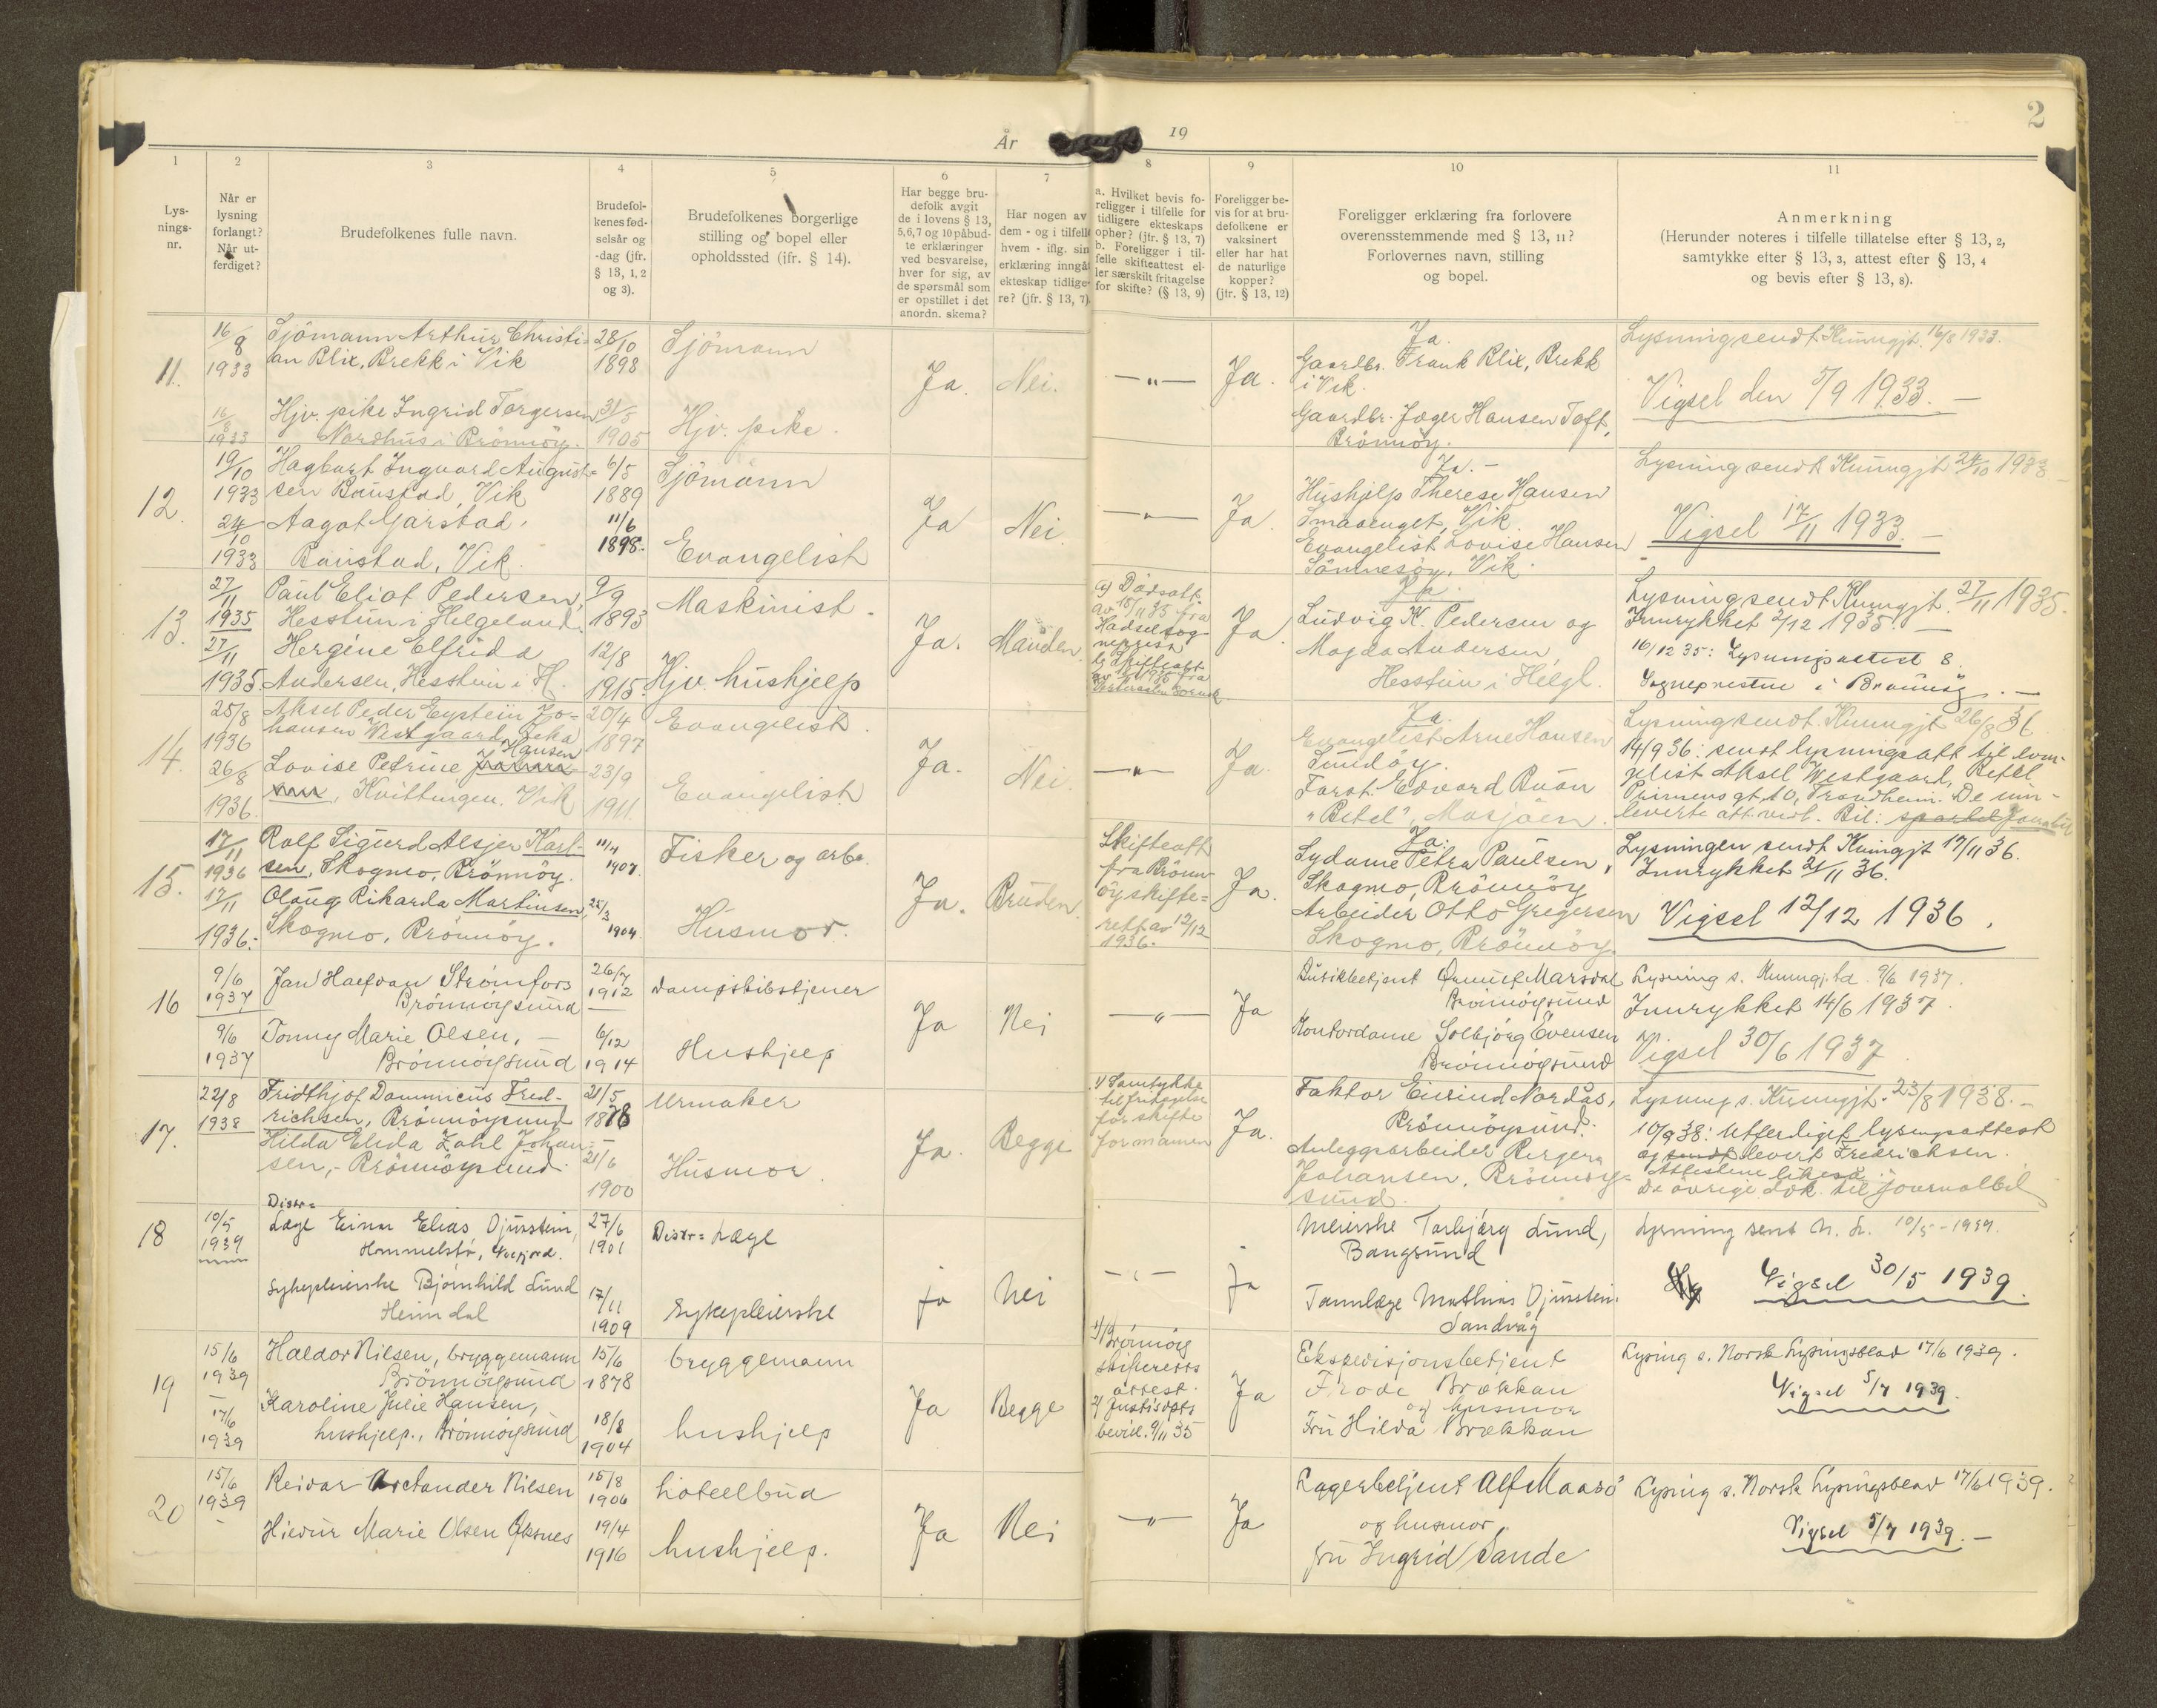 2
År
19
1
2
3
4
5
6
7
8
9
10
11
Lys-
nings-
nr.
Når er
lysning
forlangt?
Når ut-
ferdiget?
Brudefolkenes fulle navn.
Brudefol-
kenes fød-
selsår og
-dag (jfr.
§ 13, 1, 2
og 3).
Brudefolkenes borgerlige
stilling og bopel eller
opholdssted (jfr. § 14).
Har begge bru-
defolk avgit
de i lovens § 13,
5,6,7 og 10 påbud-
te erklæringer
ved besvarelse,
hver for sig, av
de spørsmål som
er opstillet i det
anordn. skema?
Har nogen av
dem - og i tilfelle
hvem - iflg. sin
erklæring inngåt
ekteskap tidlige-
re? (jfr. § 13, 7).
a. Hvilket bevis fo-
religger i tilfelle for
tidligere ekteskaps
opher? (jfr. § 13, 7)
b. Foreligger i til-
felle skifteattest el-
ler særskilt fritagelse
for skifte? (§ 13, 9)
Foreligger be-
vis for at bru-
defolkene er
vaksinert
eller har hat
de naturlige
kopper?
(jfr. § 13, 12)
Foreligger erklæring fra forlovere
overensstemmende med § 13, 11?
Forlovernes navn, stilling
og bopel.
Anmerkning
(Herunder noteres i tilfelle tillatelse efter § 13, 2,
samtykke efter § 13, 3, attest efter § 13, 4
og bevis efter § 13, 8).
11.
16/8
1933
Sjömann Arthur Christi-
an Blix, Brekk i Vik
28/10
1898
Sjömann
16/8
1933
Hjv. pike Ingrid Torgersen
Nordhus i Brönnöy.
31/5
1905
Hjv. pike.
Ja.
Nei.
— " —
Ja.
Ja.
Gaardbr. Frank Blix, Brekk
i Vik.
Gaardbr. Jæger Hansen Toft,
Brönnöy.
Lysning sendt Kunngjt. 16/8 1933.
Vigsel den 5/9 1933. —
12.
19/10
1933
Hagbart Ingvard August-
sen Baustad, Vik
6/5
1889
Sjömann
24/10
1933
Aagot Garstad,
Baustad, Vik.
11/6
1898.
Evangelist
Ja
Nei.
— " —
Ja.
Ja. —
Hushjelp Therese Hansen
Smaavuget, Vik.
Evangelist Lovise Hansen
Sömnesöy, Vik.
Lysning sendt Kunngjt 24/10 1933
Vigsel 17/11 1933. —
13.
27/11
1935
Paul Eliot Pedersen,
Hesstun i Helgeland.
9/9
1893
Maskinist.
27/11
1935
Hergine Elfrida
Andersen, Hesstun i H.
12/8
1915.
Hjv. hushjelp
Ja.
Manden.
a) Dödsatt.
av 18/11 35 fra
Hadsel sog-
b) Skifteatt.
Ja.
Ja.
Ludvig K. Pedersen og
Magda Andersen,
Hesstun i Helgl.
Lysning sendt Kunngjt. 27/11 1935.
Innrykket 2/12 1935. —
16/12 35: Lysningsattest s.
Sognepresten i Brönnöy. —
14.
25/8
1936
Aksel Peder Eystein Jo-
hansen Westgaard,
20/4
1897
Evangelist.
26/8
1936.
Lovise Petrine Hansen
, Kvittingen, Vik
23/9
1911.
Evangelist
Ja.
Nei.
— " —
Ja.
Ja.
Evangelist Arne Hansen
Sundöy.
Forst. Edvard Buan
"Betel", Mosjöen.
Lysning sendt Kunngjt 26/8 36
14/9 36: sendt lysningsatt til evan-
gelist Aksel Westgaard, Betel
Prinsens gt. 10, Trondheim. De inn-
leverte att vedl. Bil:
15.
17/11
1936
Rolf Sigurd Alsjer Karl-
sen, Skogmo, Brönnöy.
11/4
1907.
Fisker og arb.
17/11
1936.
Olaug Rikarda Martinsen,
Skogmo, Brönnöy.
25/3
1904
Husmor.
Ja.
Bruden.
Skifteatt
fra Brönn
öy skifte-
rett av 12/12
1936.
Ja.
Ja.
Sydame Petra Paulsen,
Skogmo, Brönnöy
Arbeider Otto Gregersen
Skogmo, Brönnöy.
Lysningen sendt Kunngjt 17/11 36.
Innrykket 21/11 36.
Vigsel 12/12 1936.
16
9/6
1937
Jan Halfdan Strömfors
Brönnöysund
26/7
1912
Dampskibstjener
9/6
1937
Tonny Marie Olsen, —
Brönnöysund
6/12
1914
Hushjelp
Ja
Nei
— " —
Ja
Butikkbetjent Ørnulf Marsdal
Brönnöysund
Kontordame Solbjörg Evensen
Brönnöysund
Lysning s. Kunngj.td. 9/6 1937.
Innrykket 14/6 1937.
Vigsel 30/6 1937.
17.
22/8
1938
Fridthjof Dominicus Fred-
richsen, Brönnöysund
21/5
1878
Urmaker
Hilda Elida Zahl Johan-
sen, - Brönnöysund.
21/6
1900
Husmor.
Ja.
Begge
1) Samtykke
til fritagelse
for skifte
for mannen
Ja.
Faktor Eivind Nordås,
Brönnöysund.
Anleggsarbeider Birger
Johansen, Brönnöy-
sund.
Lysning s. Kunngjt. 23/8 1938. —
10/9 38: Utferdiget lysningsattest
og sendt levert Fredrichsen.
Attestene likeså
De övrige dok. til journalbil
18
10/5
1939
Distr=
Læge Einar Elias Djupstein,
Hommelstö, Velfjord.
27/6
1901
Distr= Læge
Sykepleierske Bjørnhild Lund
Heimdal
17/11
1909
Sykepleierske
ja
nei
— " —
ja
Meierske Torbjörg Lund,
Bangsund
Tannlæge Mathias Djupstein.
Sandvåg
Lysning sent N. L. 10/5 - 1939.
Vigsel 30/5 1939.
19
15/6
1939
Haldor Nilsen, bryggemann
Brönnöysund
15/6
1878
bryggemann
17/6
1939
Karoline Julie Hansen,
hushjelp., Brönnöysund
18/8
1904
hushjelp
Ja
Begge
1) Brönnöy
skifteretts
attest.
2) Justisdpts
bevill. 9/11 35
Ja
Ekspedisjonsbetjent
Frode Brækkan
og husmor
Fru Hilda Brækkan
Lysing s. Norsk Lysingsblad 17/6 1939.
Vigsel 5/7 1939.
20
15/6
1939
Reidar Arctander Nilsen
15/8
1906
hotellbud
Hjørdis Marie Olsen Øksnes
19/4
1916
hushjelp.
Ja
Nei
— " —
Ja
Lagerbetjent Alf Maasö
og husmor,
fru Ingrid Sande
Lysing s. Norsk Lysingsblad 17/6 1939.
Vigsel 5/7 1939. —